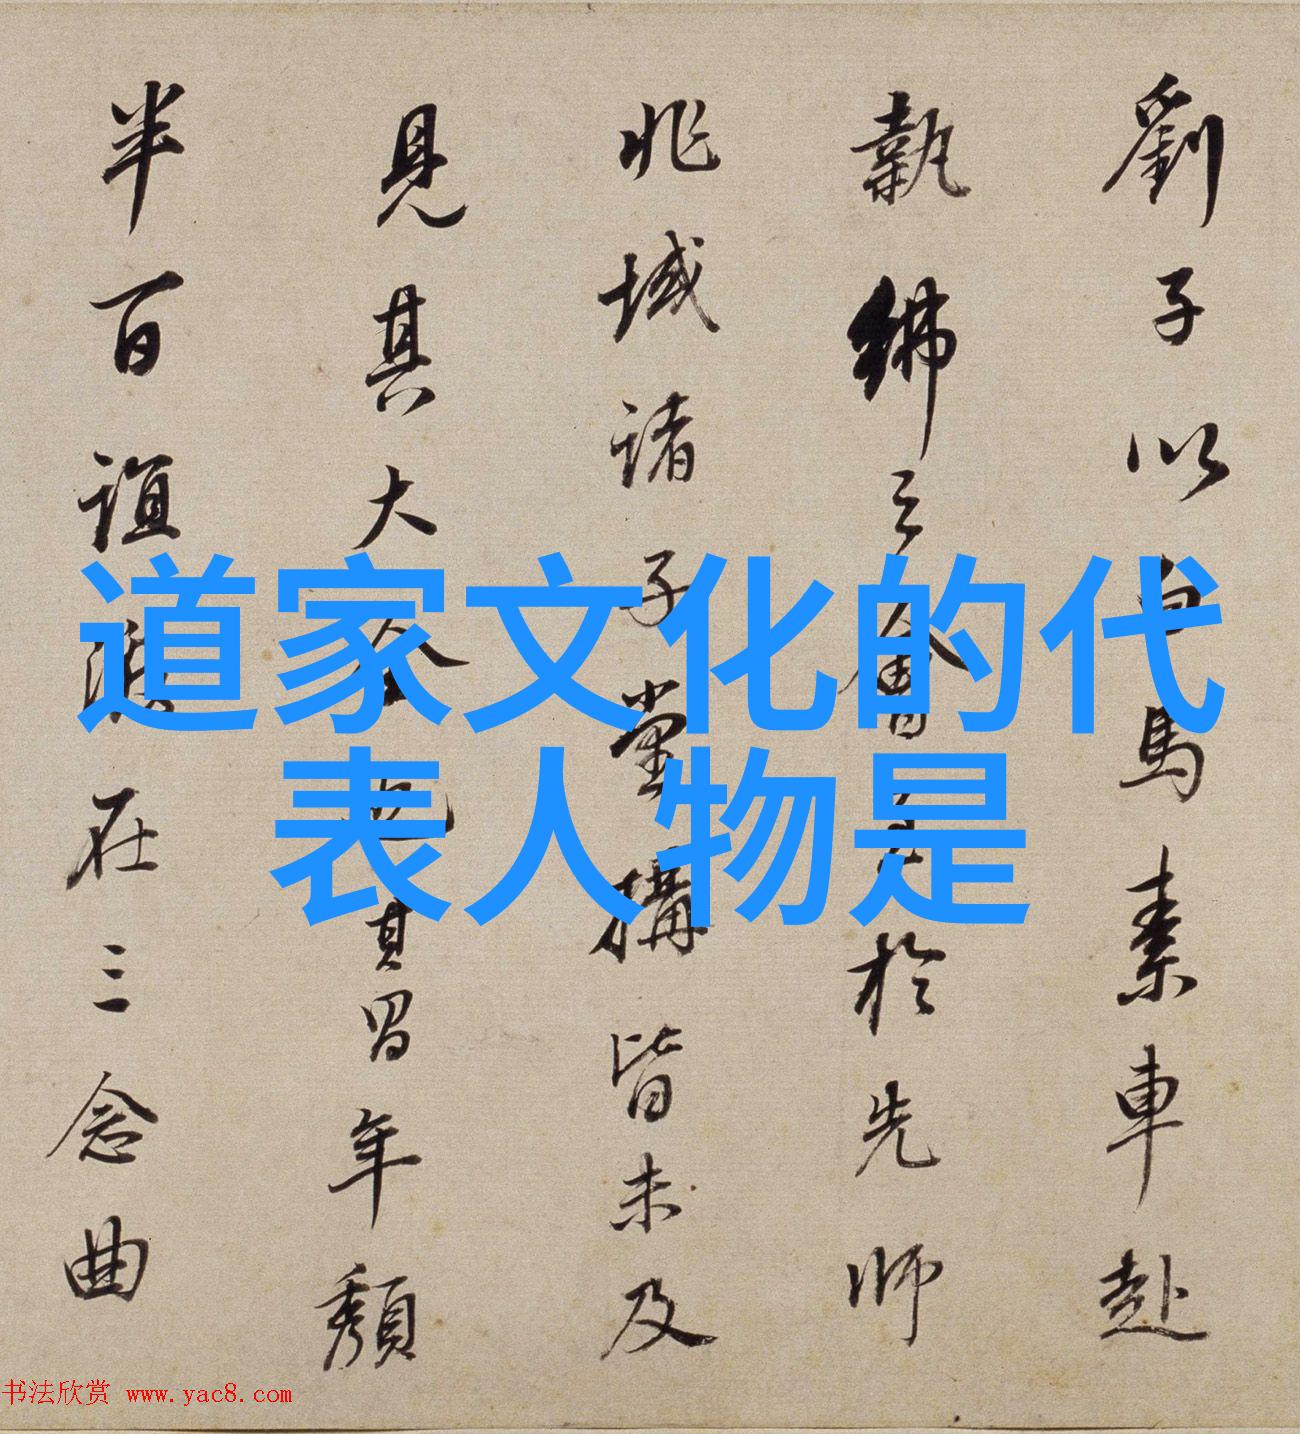 道家文化的代
表人物是
劉子以白馬素車赴
執紼之會於先師
兆域諸子堂構皆未及
見其大其年頹
半百誼在三念曲
书法欣赏 www.yac8.com